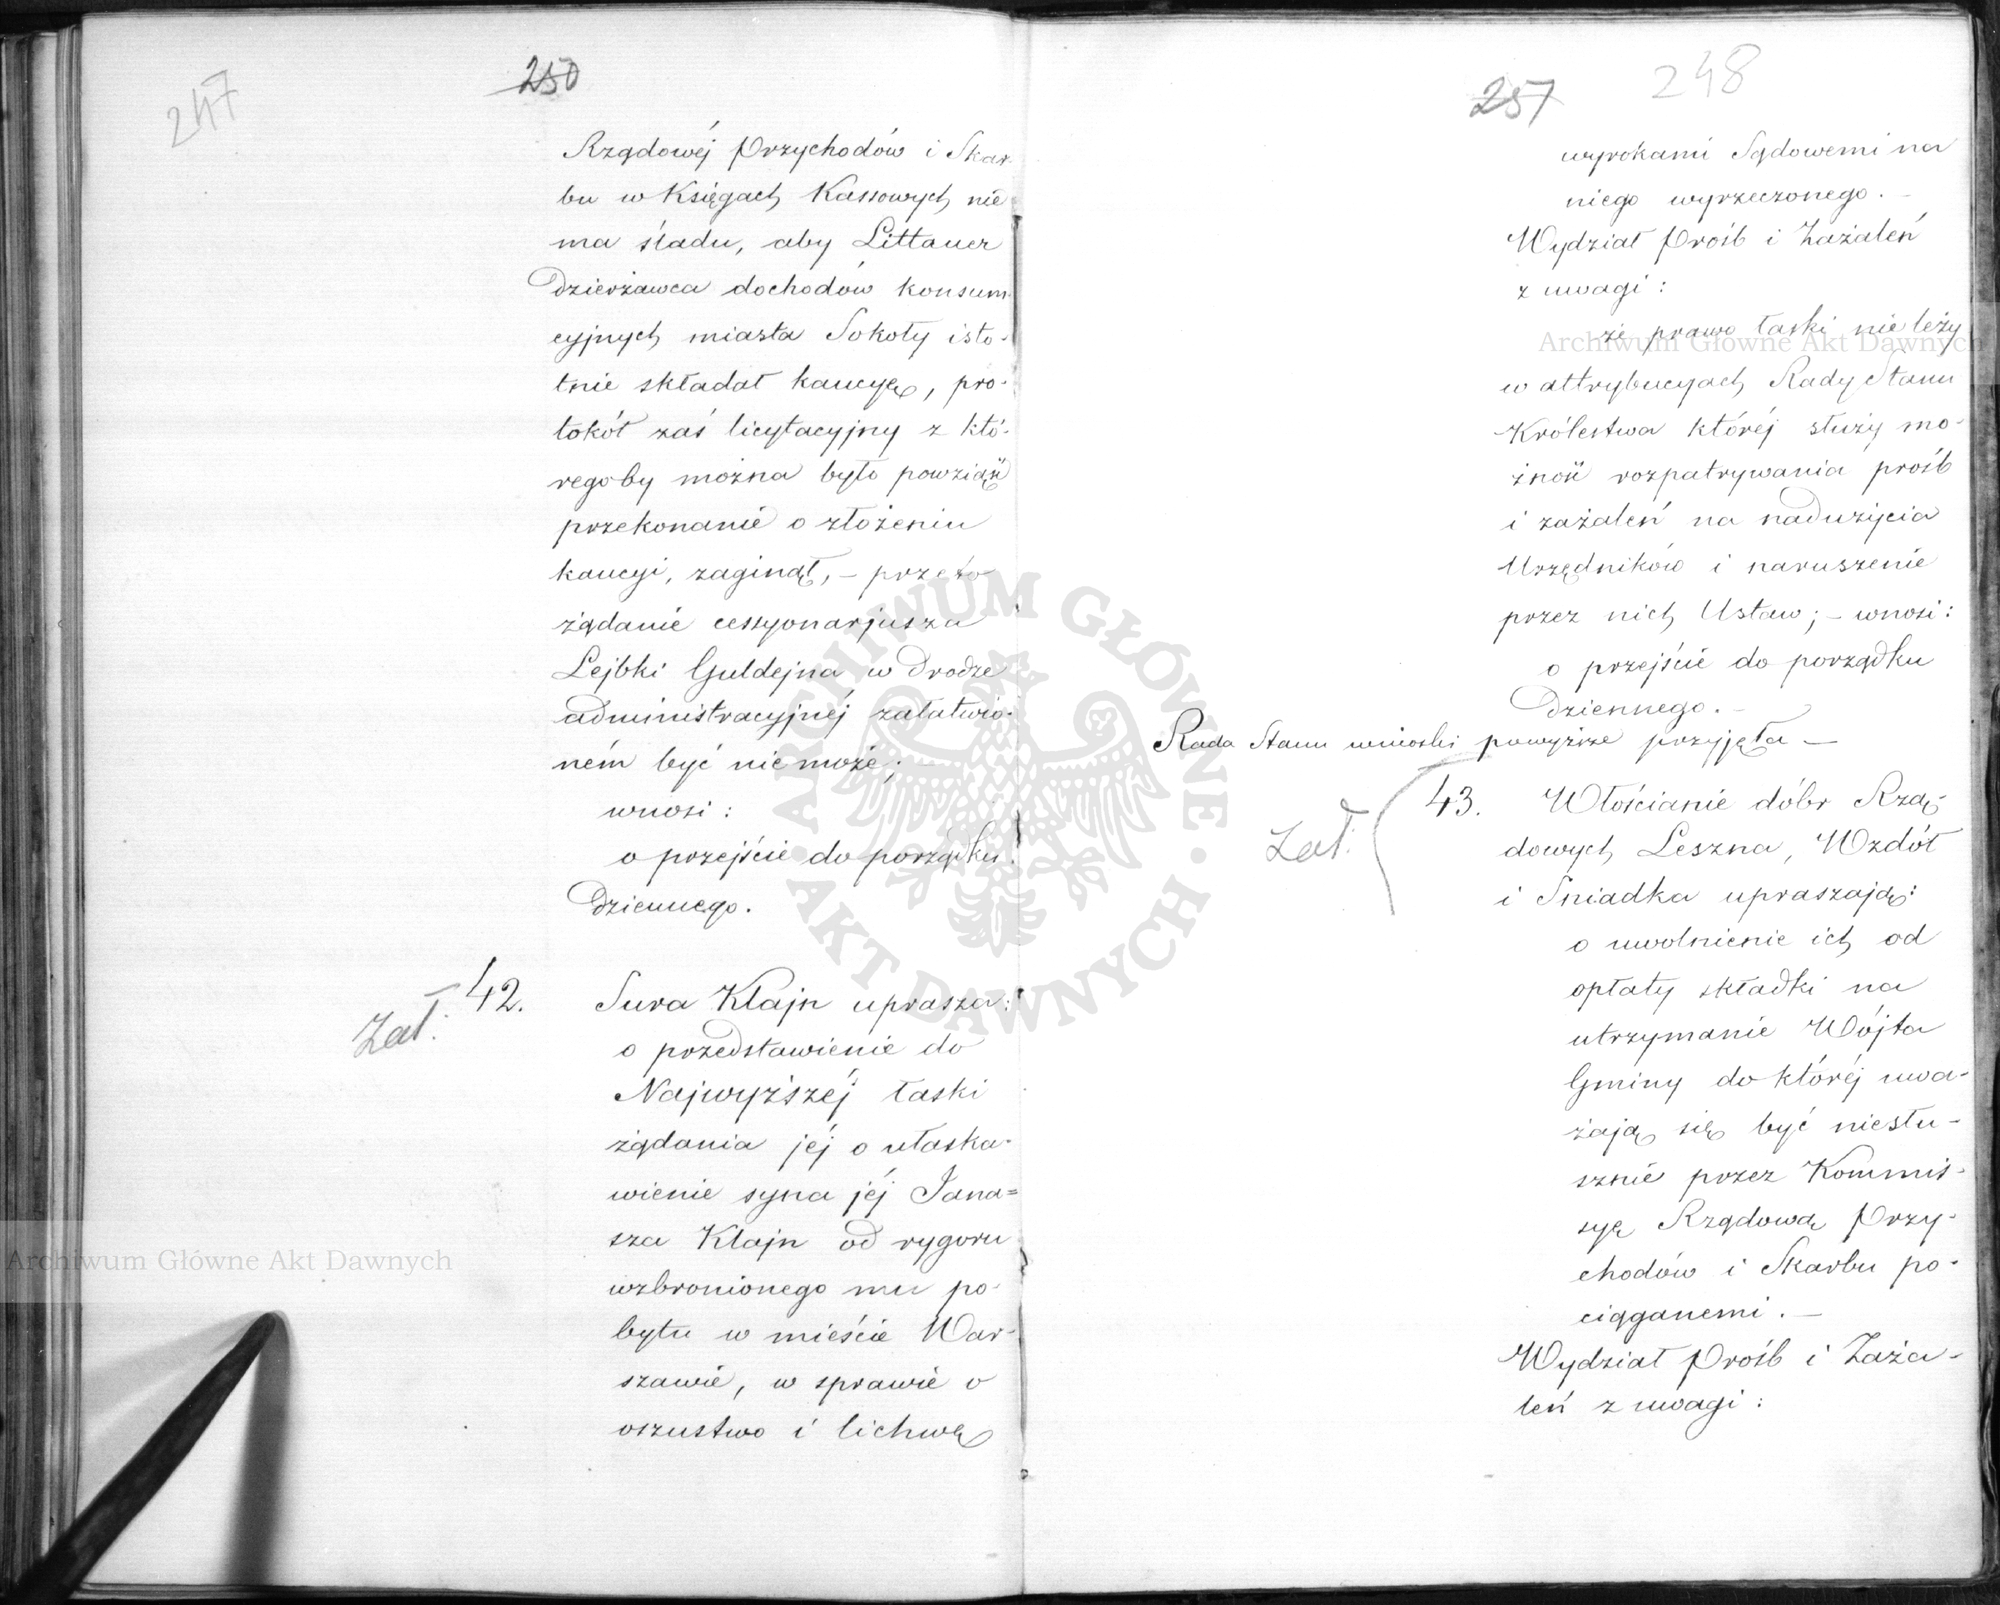 247
250
Rządowéj Przychodów i Skar-
bu w Księgach Kassowych nie
ma śladu, aby Littauer
Dzierżawca dochodów konsum-
cyjnych miasta Sokoły isto-
tnie składał kaucyę, pro-
tokół zaś licytacyjny z któ-
regoby można było powziąść
przekonanie o złożeniu
kaucyi, zaginął, – przeto
żądanie cessyonarjusza
Lejbki Guldejna w drodze
administracyjnéj załatwio-
ném być nie może;
wnosi:
o przejście do porządku
Dziennego.
42.
Zał.
Sura Klajn uprasza:
o przedstawienie do
Najwyższéj łaski
żądania jéj o ułaska-
wienie syna jéj Jana=
sza Klajn od rygoru
wzbronionego mu po-
bytu w mieście War-
szawie, w sprawie o
oszustwo i lichwę
257
248
wyrokami Sądowemi na
niego wyrzeczonego. –
Wydział Prośb i Zażaleń
z uwagi:
że prawo łaski nie leży
w attrybucyach Rady Stanu
Królestwa któréj służy mo-
żność rozpatrywania prośb
i zażaleń na nadużycia
Urzędników i naruszenie
przez nich Ustaw; – wnosi:
o przejście do porządku
Dziennego. –
Rada Stanu wnioski powyższe przyjęła –
43.
Zał.
Włościanie dóbr Rzą-
dowych Leszna, Wzdół
i Sniadka upraszają:
o uwolnienie ich od
opłaty składki na
utrzymanie Wójta
Gminy do któréj uwa-
żają się być niesłu-
sznie przez Kommis-
syę Rządową Przy-
chodów i Skarbu po-
ciąganemi. –
Wydział Prośb i Zaża-
leń z uwagi:
Archiwum Główne Akt Dawnych
Archiwum Główne Akt Dawnych
ARCHIWUM GŁÓWNE · AKT DAWNYCH ·